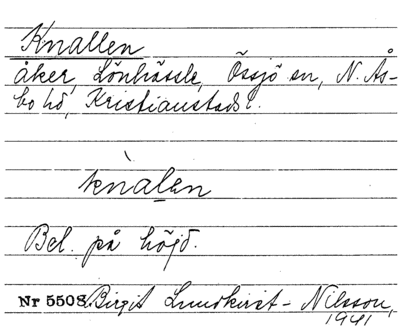 Knallen
åker, Lönhässle, Össjö sn, N. Ås-
bo hd, Kristianstads l.
knalen
Bel. på höjd.
Nr 5508 Birgit Lundkvist-Nilsson,
1941